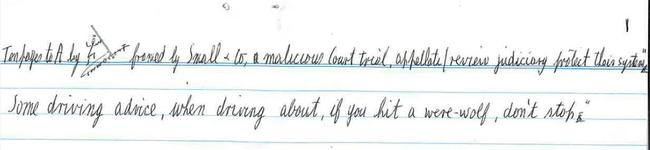 1
Ten pages to A by framed by Small & Co, a malicious Court trial, appellate/review judiciary protect their system,"
Some driving advice, when driving about, if you hit a were-wolf, don't stop."